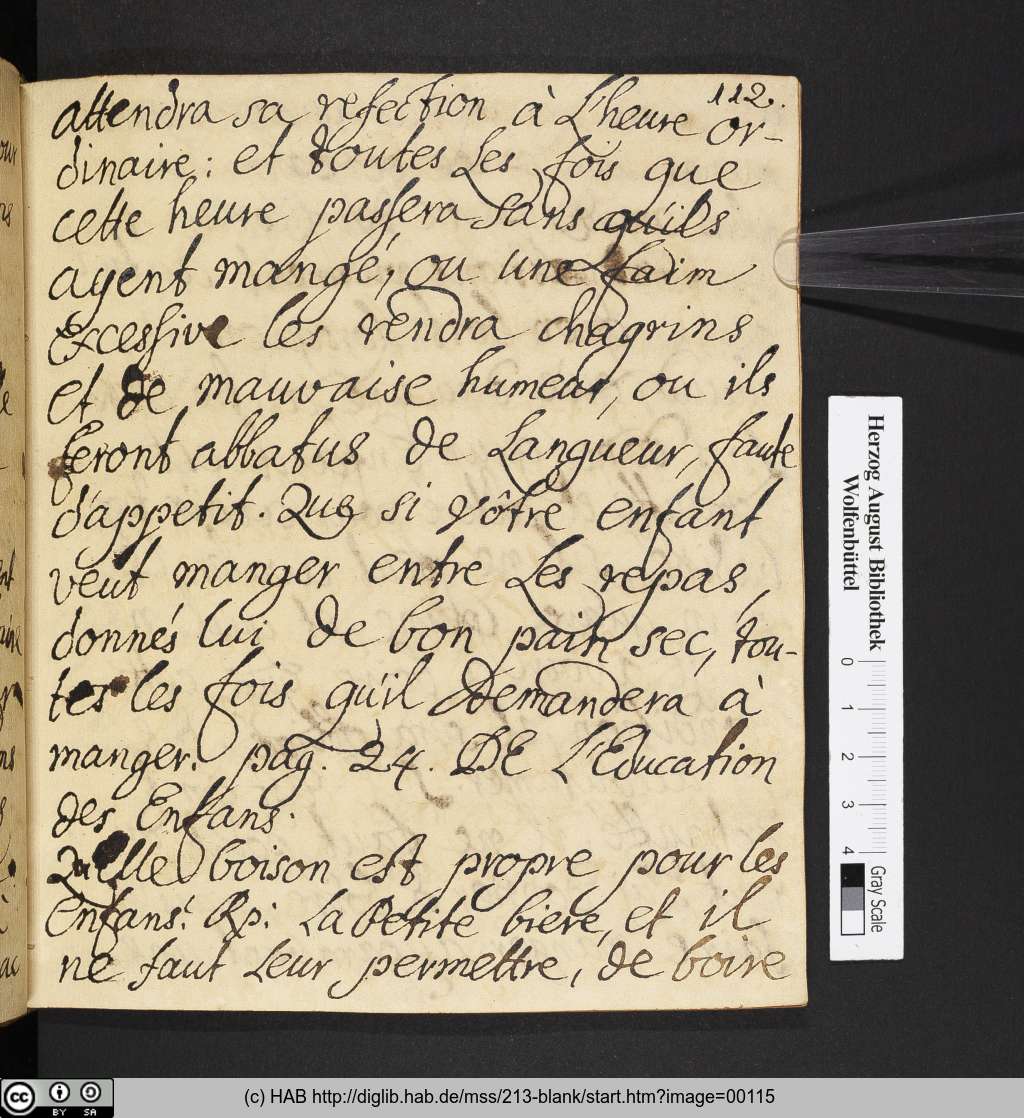 112.
attendra sa refection à L'heure or-
dinaire: et toutes Les fois que
cette heure passera sans qu'ils
ayent mangé, ou une faim
excessive les rendra chagrins
et de mauvaise humeur, ou ils
seront abbatus de Langueur, faute
d'appetit. Que si vôtre enfant
veut manger entre Les repas,
donnés lui de bon pain sec, tou-
tes les fois qu'il demandera à
manger. pag. 24. DE L'Education
des Enfans.
Quelle boison est propre pour les
Enfans? Rp: La Petite biere, et il
ne faut Leur permettre, de boire
Herzog August Bibliothek
Wolfenbüttel
0 1 2 3 4
Gray Scale
cc BY SA
(c) HAB http://diglib.hab.de/mss/213-blank/start.htm?image=00115